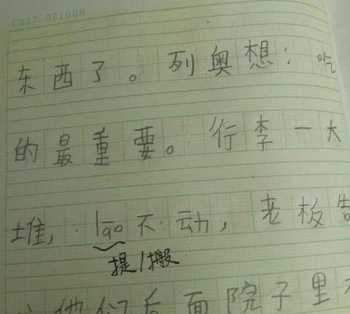 东西了。列奥想：吃
的最重要。行李一大
堆，lāo不动，老板
提/搬
们后面院子里